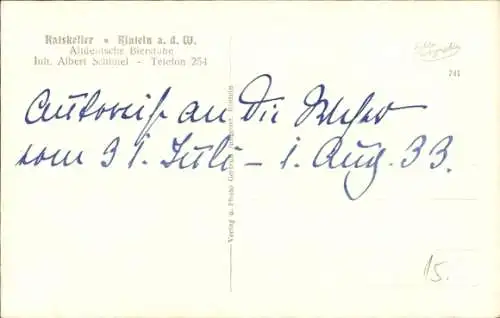 Ratskeller • Rinteln a. d. W.
Altdeutsche Bierstube
Inh. Albert Schimel - Telefon 254
741
Autoreise an die Weser
vom 31. Juli - 1. Aug. 33.
Verlag u. Photo Gebrüder Rinteln
15.